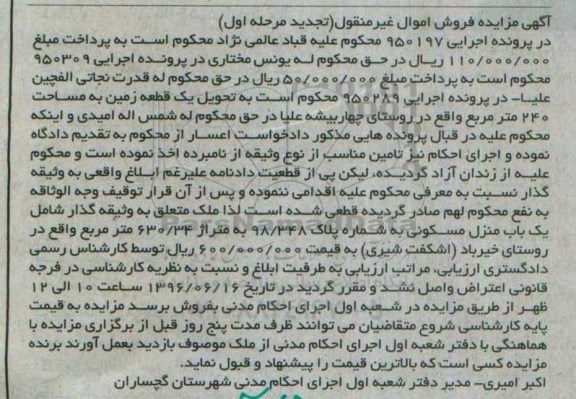 آگهی مزایده فروش اموال غیرمنقول(تجدید مرحله اول)
در پرونده اجرایی ۹۵۰۱۹۷ محکوم علیه قباد عالمی نژاد محکوم است به پرداخت مبلغ
۱۱۰/۰۰۰/۰۰۰ ریال در حق محکوم له یونس مختاری در پرونده اجرایی ۹۵۰۳۰۹
محکوم است به پرداخت مبلغ ۵۰/۰۰۰/۰۰۰ ریال در حق محکوم له قدرت نجاتی الفچین
علیا- در پرونده اجرایی ۹۵۰۲۸۹ محکوم است به تحویل یک قطعه زمین به مساحت
۲۴۰ متر مربع واقع در روستای چهاربیشه علیا در حق محکوم له شمس اله امیدی و اینکه
محکوم علیه در قبال پرونده هایی مذکور دادخواست اعسار از محکوم به تقدیم دادگاه
نموده و اجرای احکام نیز تامین مناسب از نوع وثیقه از نامبرده اخذ نموده است و محکوم
علیه از زندان آزاد گردیده، لیکن پی از قطعیت دادنامه علیرغم ابلاغ واقعی به وثیقه
گذار نسبت به معرفی محکوم علیه اقدامی ننموده و پس از آن قرار توقیف وجه الوثاقه
به نفع محکوم لهم صادر گردیده قطعی شده است لذا ملک متعلق به وثیقه گذار شامل
یک باب منزل مسکونی به شماره پلاک ۹۸/۳۴۸ به متراژ ۶۳۰/۳۴ متر مربع واقع در
روستای خیرباد (اشکفت شیری) به قیمت ۶۰۰/۰۰۰/۰۰۰ ریال توسط کارشناس رسمی
دادگستری ارزیابی، مراتب ارزیابی به طرفیت ابلاغ و نسبت به نظریه کارشناسی در فرجه
قانونی اعتراض واصل نشد و مقرر گردید در تاریخ ۱۳۹۶/۰۶/۱۶ ساعت ۱۰ الی ۱۲
ظهر از طریق مزایده در شعبه اول اجرای احکام مدنی بفروش برسد مزایده به قیمت
پایه کارشناسی شروع متقاضیان می توانند ظرف مدت پنج روز قبل از برگزاری مزایده با
هماهنگی با دفتر شعبه اول اجرای احکام مدنی از ملک موصوف بازدید بعمل آورند برنده
مزایده کسی است که بالاترین قیمت را پیشنهاد و قبول نماید.
اکبر امیری- مدیر دفتر شعبه اول اجرای احکام مدنی شهرستان گچساران